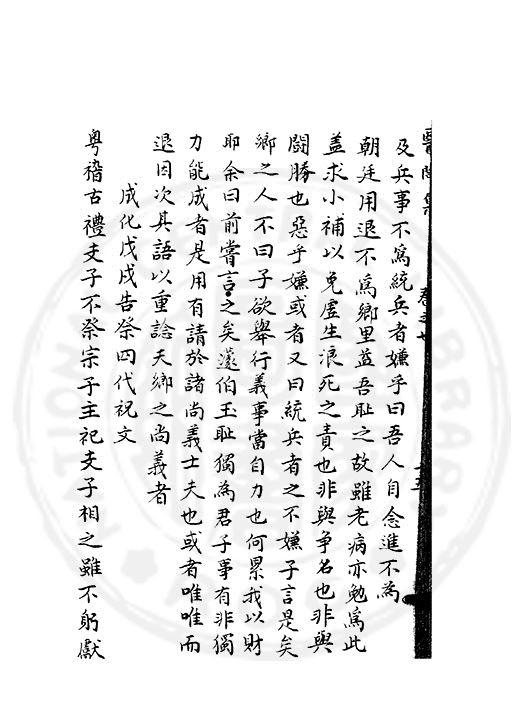 及兵事不爲統兵者嫌乎曰吾人自念進不為
朝廷用退不爲鄉里益吾恥之故雖老病亦勉爲此
盖求小補以免虛生浪死之責也非與争名也非與
鬪勝也惡乎嫌或者又曰統兵者之不嫌子言是矣
鄉之人不曰子欲舉行義事當自力也何累我以財
耶余曰前嘗言之矣蘧伯玉恥獨為君子事有非獨
力能成者是用有請於諸尚義士夫也或者唯唯而
退因次其語以重諗夫鄉之尚義者
成化戊戌告祭四代祝文
粤稽古禮支子不祭宗子主祀支子相之雖不躬獻